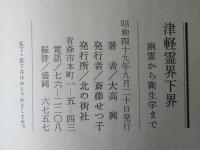 津軽霊界下界
幽霊から衛生学まで
昭和四十九年九月二十日発行
著者／大高興
発行者／斎藤せつ子
発行所／北の街社
青森市本町一ノ五ノ四三
電話／七六―二二〇八
振替／盛岡 六七五七
乱丁・落丁本はおとりかえします。